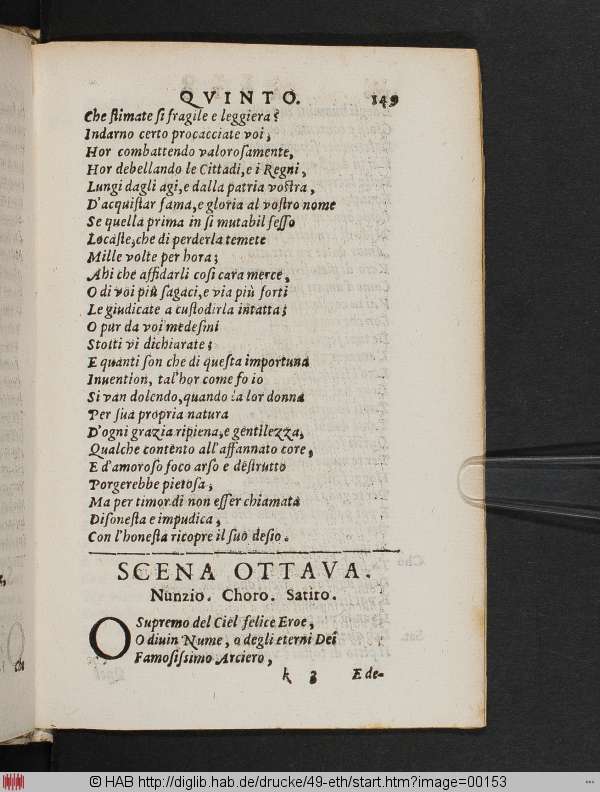 QVINTO. 149
Che ſtimate ſi fragile e leggiera?
Indarno certo procacciate voi,
Hor combattendo valoroſamente,
Hor debellando le Cittadi, e i Regni,
Lungi dagli agi, e dalla patria voſtra,
D'acquiſtar fama, e gloria al voſtro nome
Se quella prima in ſi mutabil ſeſſo
Locaſte, che di perderla temete
Mille volte per hora;
Ahi che affidarli coſi cara merce,
O di voi più ſagaci, e via più forti
Le giudicate a cuſtodirla intatta;
O pur da voi medeſmi
Stolti vi dichiarate;
E quanti ſon che di queſta importuna
Inuention, tal'hor come fo io
Si van dolendo, quando la lor donna
Per ſua propria natura
D'ogni grazia ripiena, e gentilezza,
Qualche contento all'affannato core,
E d'amoroſo foco arſo e deſtrutto
Porgerebbe pietoſa;
Ma per timor di non eſſer chiamata
Diſoneſta e impudica,
Con l'honeſta ricopre il ſuo deſio.
SCENA OTTAVA.
Nunzio. Choro. Satiro.
O Supremo del Ciel felice Eroe,
O diuin Nume, o degli eterni Dei
Famoſiſsimo Arciero,
k 3 E de-
© HAB http://diglib.hab.de/drucke/49-eth/start.htm?image=00153